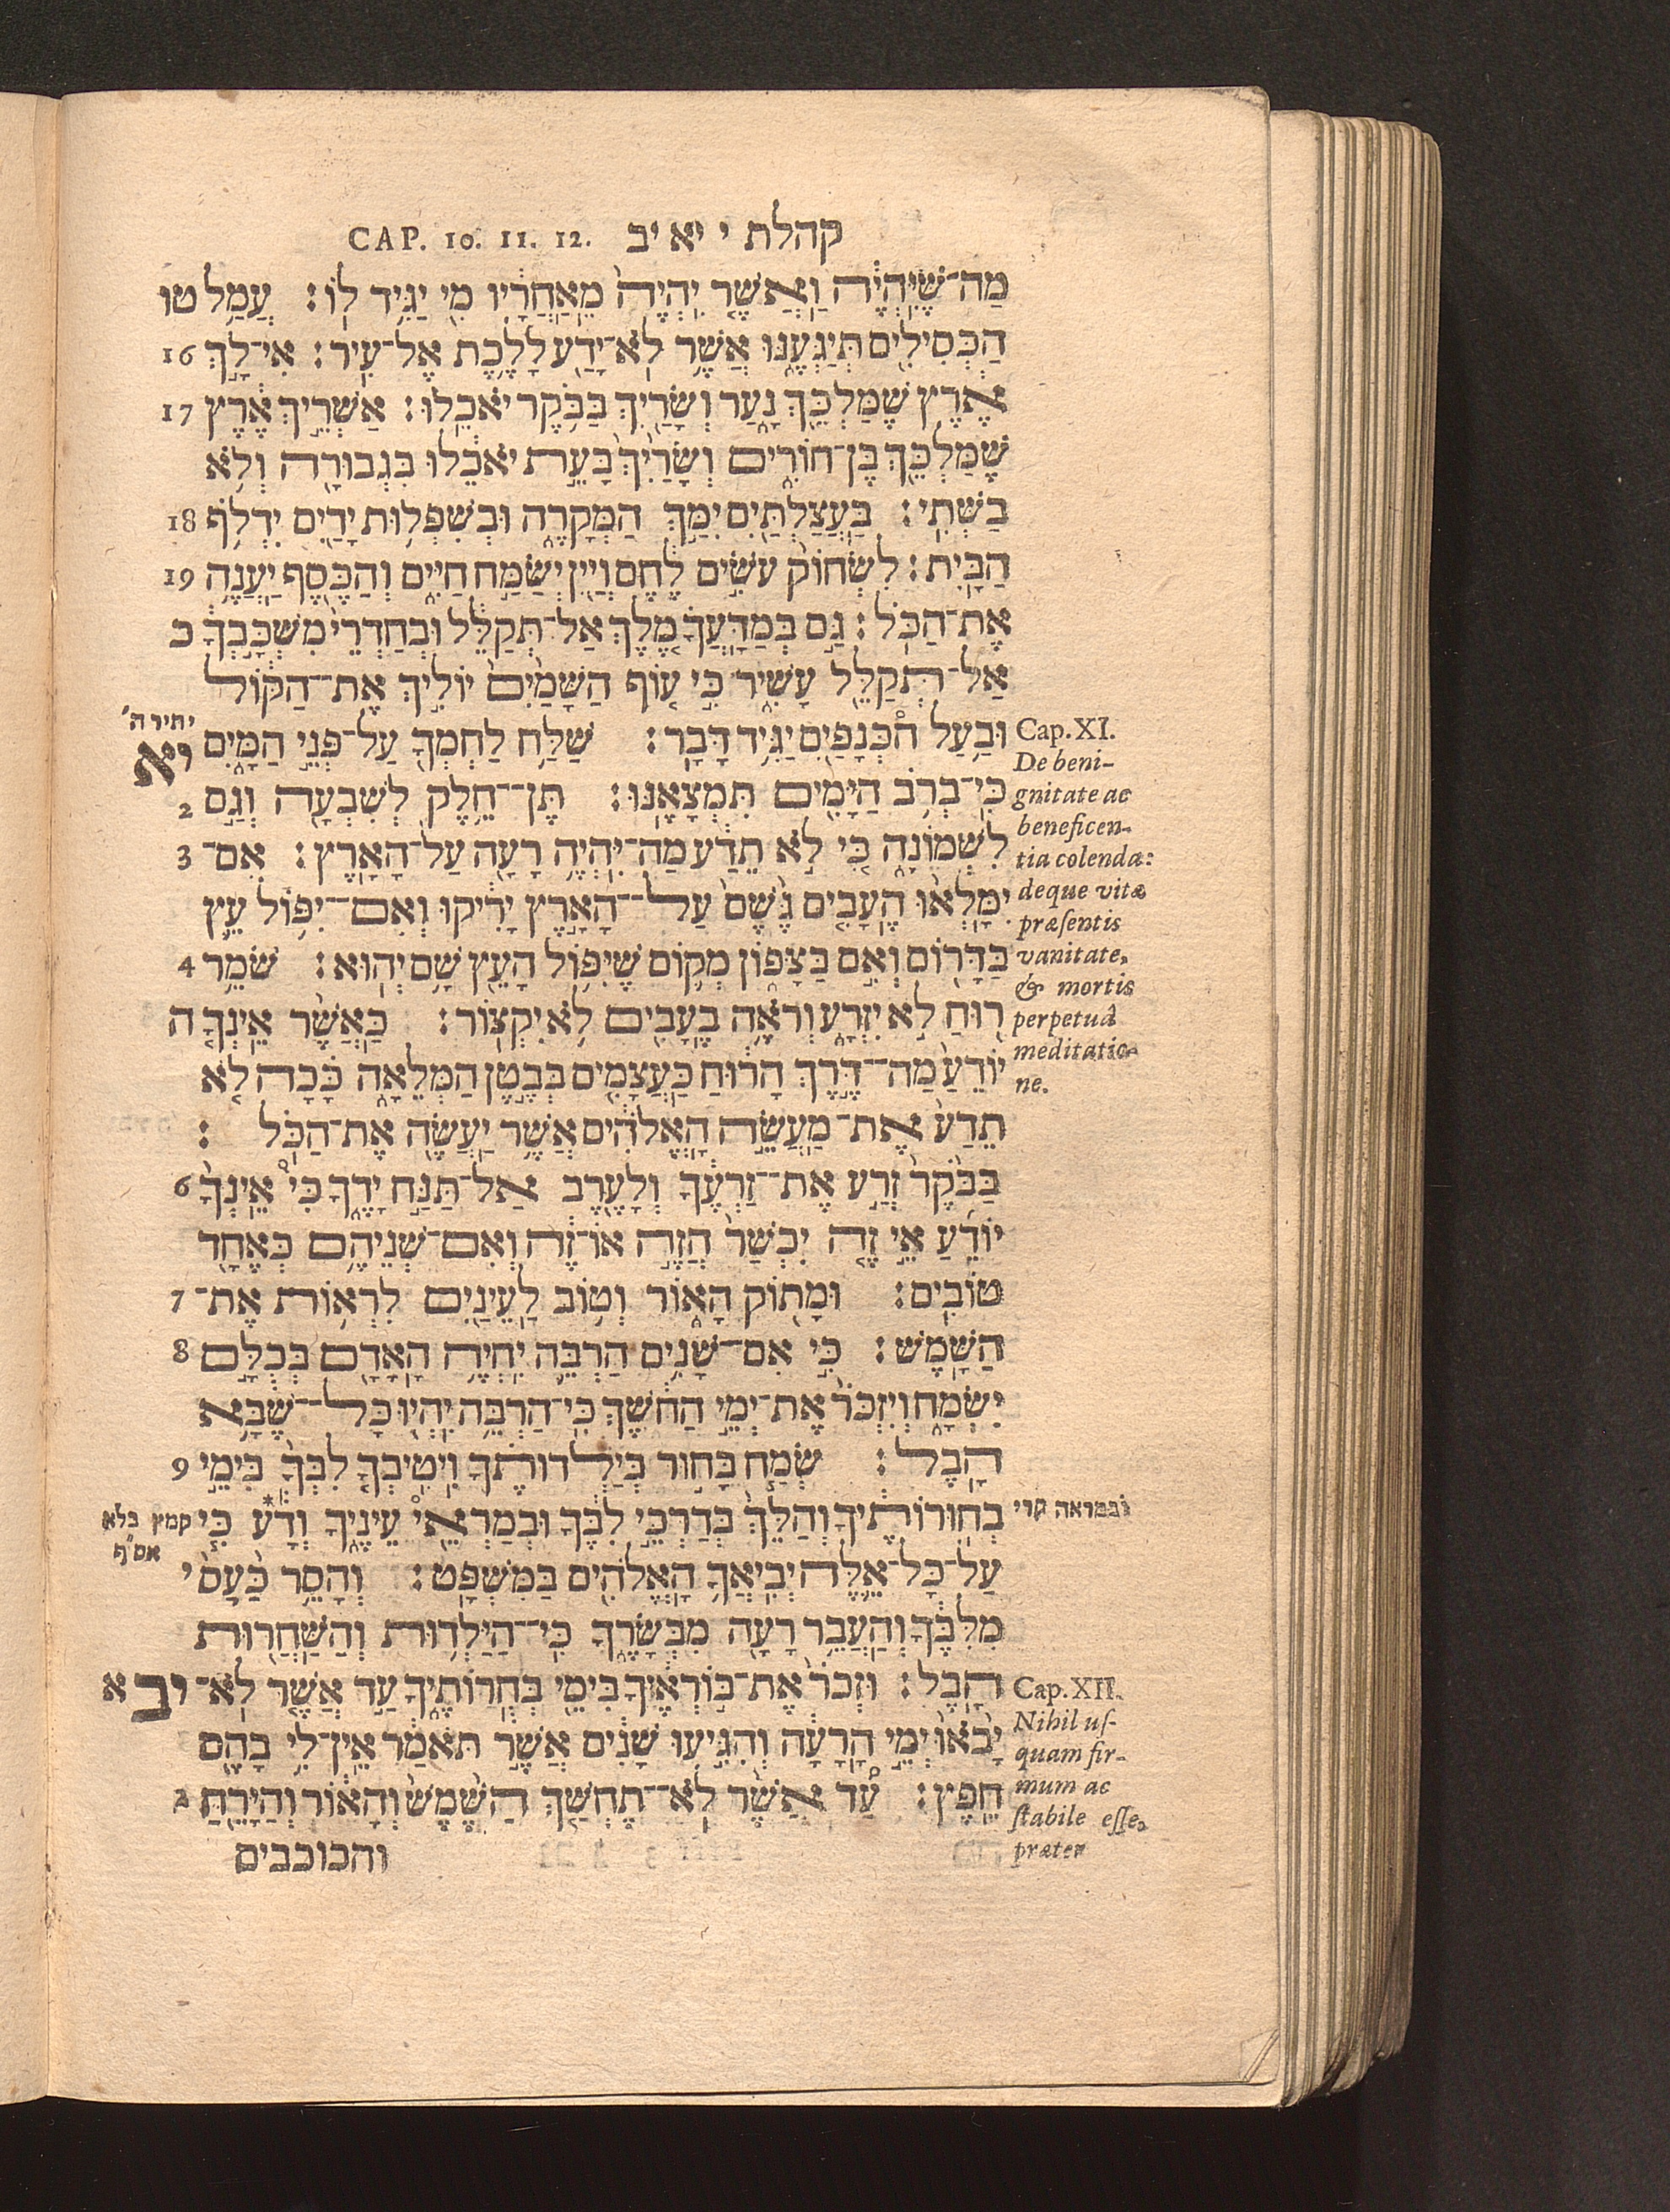 קהלת י יא יב CAP. 10. 11. 12.
מַה־שֶּׁיִּהְיֶ֔ה וַאֲשֶׁ֤ר יִֽהְיֶה֙ מֵֽאַחֲרָ֔יו מִ֖י יַגִּ֥יד לֽוֹ׃ עֲמַ֥ל טו
הַכְּסִילִ֖ים תְּיַגְּעֶ֑נּוּ אֲשֶׁ֥ר לֹֽא־יָדַ֖ע לָלֶ֥כֶת אֶל־עִֽיר׃ אִֽי־לָ֣ךְ 16
אֶ֔רֶץ שֶׁמַּלְכֵּ֖ךְ נָ֑עַר וְשָׂרַ֖יִךְ בַּבֹּ֥קֶר יֹאכֵֽלוּ׃ אַשְׁרֵ֣יךְ אֶ֔רֶץ 17
שֶׁמַּלְכֵּ֖ךְ בֶּן־חוֹרִ֑ים וְשָׂרַ֙יִךְ֙ בָּעֵ֣ת יֹאכֵ֔לוּ בִּגְבוּרָ֖ה וְלֹ֥א
בַשְּׁתִֽי׃ בַּעֲצַלְתַּ֖יִם יִמַּ֣ךְ הַמְּקָרֶ֑ה וּבְשִׁפְל֥וּת יָדַ֖יִם יִדְלֹ֥ף 18
הַבָּֽיִת׃ לִשְׂחוֹק֙ עֹשִׂ֣ים לֶ֔חֶם וְיַ֖יִן יְשַׂמַּ֣ח חַיִּ֑ים וְהַכֶּ֖סֶף יַעֲנֶ֥ה 19
אֶת־הַכֹּֽל׃ גַּ֣ם בְּמַדָּֽעֲךָ֗ מֶ֚לֶךְ אַל־תְּקַלֵּ֔ל וּבְחַדְרֵי֙ מִשְׁכָּ֣בְךָ֔ כ
אַל־תְּקַלֵּ֖ל עָשִׁ֑יר כִּ֣י ע֤וֹף הַשָּׁמַ֙יִם֙ יוֹלִ֣יךְ אֶת־הַקּ֔וֹל
יתיר ה'
וּבַ֥עַל הכְּנָפַ֖יִם יַגִּ֥יד דָּבָֽר׃ שַׁלַּ֥ח לַחְמְךָ֖ עַל־פְּנֵ֣י הַמָּ֑יִם יא
Cap. XI.
כִּֽי־בְרֹ֥ב הַיָּמִ֖ים תִּמְצָאֶֽנּוּ׃ תֶּן־חֵ֥לֶק לְשִׁבְעָ֖ה וְגַ֣ם 2
לִשְׁמוֹנָ֑ה כִּ֚י לֹ֣א תֵדַ֔ע מַה־יִּֽהְיֶ֥ה רָעָ֖ה עַל־הָאָֽרֶץ׃ אִם־ 3
יִמָּלְא֨וּ הֶעָבִ֥ים גֶּ֙שֶׁם֙ עַל־הָאָ֣רֶץ יָרִ֔יקוּ וְאִם־יִפּ֥וֹל עֵ֛ץ
בַּדָּר֖וֹם וְאִ֣ם בַּצָּפ֑וֹן מְק֛וֹם שֶׁיִּפּ֥וֹל הָעֵ֖ץ שָׁ֥ם יְהֽוּא׃ שֹׁמֵ֥ר 4
ר֖וּחַ לֹ֣א יִזְרָ֑ע וְרֹאֶ֥ה בֶעָבִ֖ים לֹ֥א יִקְצֽוֹר׃ כַּאֲשֶׁ֨ר אֵֽינְךָ֤ ה
יוֹדֵ֙עַ֙ מַה־דֶּ֣רֶךְ הָר֔וּחַ כַּעֲצָמִ֖ים בְּבֶ֣טֶן הַמְּלֵאָ֑ה כָּ֗כָה לֹ֤א
תֵדַע֙ אֶת־מַעֲשֵׂ֣ה הָֽאֱלֹהִ֔ים אֲשֶׁ֥ר יַעֲשֶׂ֖ה אֶת־הַכֹּֽל׃
בַּבֹּ֙קֶר֙ זְרַ֣ע אֶת־זַרְעֶ֔ךָ וְלָעֶ֖רֶב אַל־תַּנַּ֣ח יָדֶ֑ךָ כִּי֩ אֵֽינְךָ֨ 6
יוֹדֵ֜עַ אֵ֣י זֶ֤ה יִכְשַׁר֙ הֲזֶ֣ה אוֹ־זֶ֔ה וְאִם־שְׁנֵיהֶ֥ם כְּאֶחָ֖ד
טוֹבִֽים׃ וּמָת֖וֹק הָא֑וֹר וְט֥וֹב לַֽעֵינַ֖יִם לִרְא֥וֹת אֶת־ 7
הַשָּֽׁמֶשׁ׃ כִּ֣י אִם־שָׁנִ֥ים הַרְבֵּ֛ה יִחְיֶ֥ה הָאָדָ֖ם בְּכֻלָּ֣ם 8
יִשְׂמָ֑ח וְיִזְכֹּר֙ אֶת־יְמֵ֣י הַחֹ֔שֶׁךְ כִּֽי־הַרְבֵּ֥ה יִהְי֖וּ כָּל־שֶׁבָּ֥א
הָֽבֶל׃ שְׂמַ֧ח בָּח֣וּר בְּיַלְדוּתֶ֗ךָ וִֽיטִֽיבְךָ֤ לִבְּךָ֙ בִּימֵ֣י 9
בְחוּרוֹתֶ֔יךָ וְהַלֵּךְ֙ בְּדַרְכֵ֣י לִבְּךָ֔ וּבְמַרְאֵ֖י עֵינֶ֑יךָ וְדָ֕ע כִּ֧י
ובמראה קרי
קמץ בלא
אס״ף
עַל־כָּל־אֵ֛לֶּה יְבִֽיאֲךָ֥ הָאֱלֹהִ֖ים בַּמִּשְׁפָּֽט׃ וְהָסֵ֥ר כַּ֙עַס֙ י
מִלִּבֶּ֔ךָ וְהַעֲבֵ֥ר רָעָ֖ה מִבְּשָׂרֶ֑ךָ כִּֽי־הַיַּלְד֥וּת וְהַֽשַּׁחֲר֖וּת
הָֽבֶל׃ וּזְכֹר֙ אֶת־בּ֣וֹרְאֶ֔יךָ בִּימֵ֖י בְּחֻרוֹתֶ֑יךָ עַ֣ד אֲשֶׁ֤ר לֹא־ יב א
יָבֹ֙אוּ֙ יְמֵ֣י הָֽרָעָ֔ה וְהִגִּ֣יעוּ שָׁנִ֔ים אֲשֶׁ֣ר תֹּאמַ֔ר אֵֽין־לִ֥י בָהֶ֖ם
חֵֽפֶץ׃ עַ֠ד אֲשֶׁ֨ר לֹֽא־תֶחְשַׁ֤ךְ הַשֶּׁ֙מֶשׁ֙ וְהָא֔וֹר וְהַיָּרֵ֖חַ 2
והכוכבים
De beni-
gnitate ac
beneficen-
tia colenda:
deque vitæ
præsentis
vanitate,
& mortis
perpetuâ
meditatio-
ne.
Cap. XII.
Nihil us-
quam fir-
mum ac
stabile esse,
præter